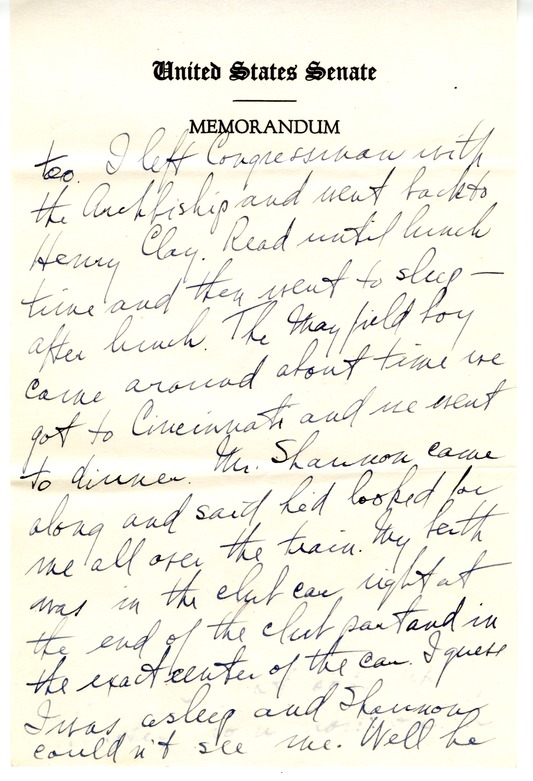 United States Senate
MEMORANDUM
too. I left Congressman with
the Archbiship and went back to
Henry Clay. Read until lunch
time and then went to sleep —
after lunch. The Mayfield boy
came around about time we
got to Cincinnati and we went
to dinner. Mr. Shannon came
along and said he'd looked for
me all over the train. My berth
was in the club car right at
the end of the club part and in
the exact center of the car. I guess
I was asleep and Shannon
could n't see me. Well he